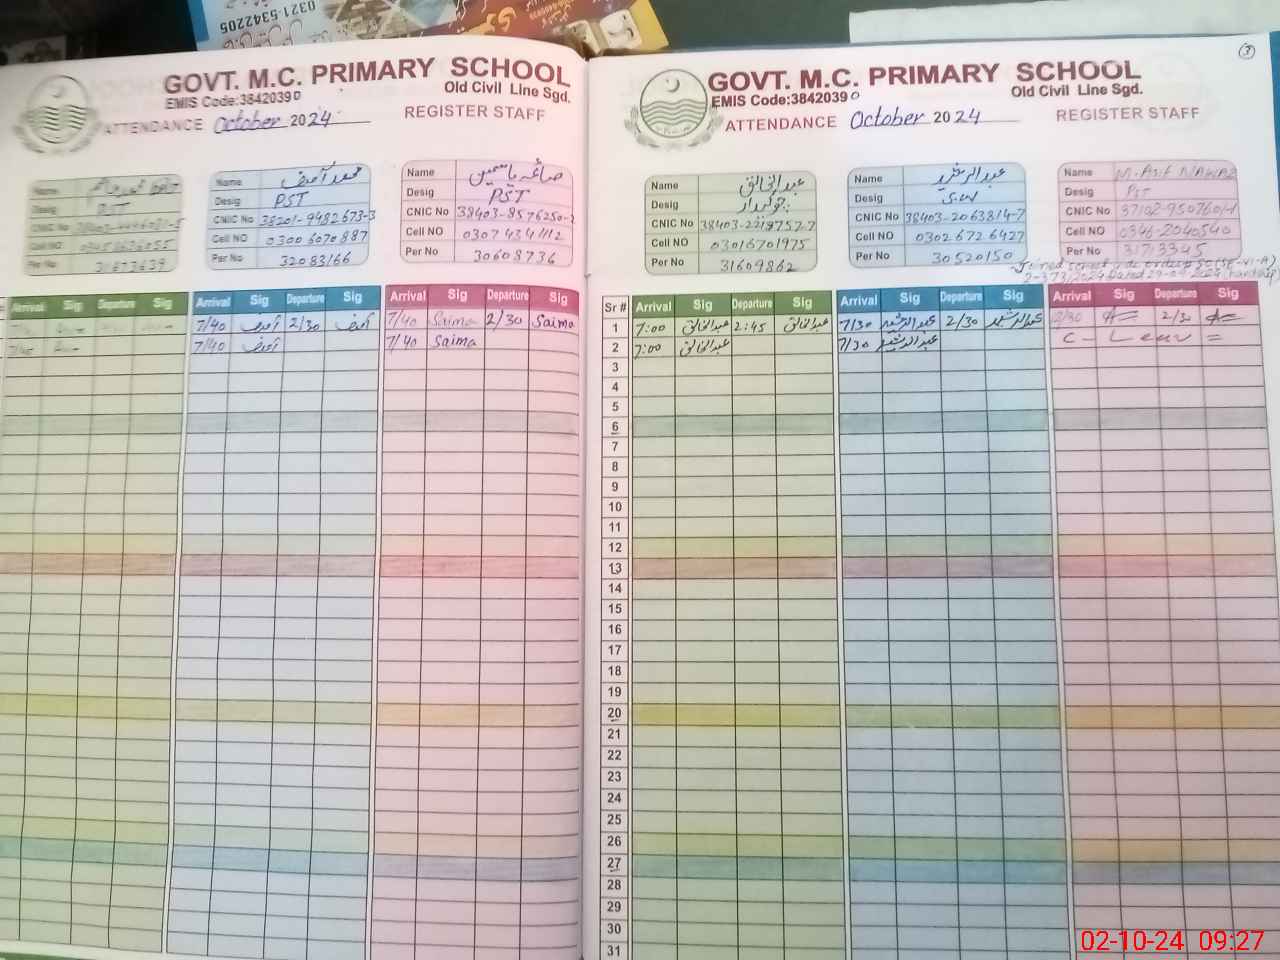 0321-5342205
GOVT. M.C. PRIMARY SCHOOL
EMIS Code:38420390
Old Civil Line Sgd.
ATTENDANCE October 2024
REGISTER STAFF
Name
Desig PST
CNIC No
Cell NO
Per No 31673639
Name محمد آصف
Desig PST
CNIC No 38201-9482673-3
Cell NO 0300 6070887
Per No 32083166
Name صائمہ یاسمین
Desig PST
CNIC No 38403-8576250-2
Cell NO 0307 4341112
Per No 30608736
Arrival Sig Departure Sig Arrival Sig Departure Sig Arrival Sig Departure Sig
7/40 آصف 2/30 آصف 7/40 Saima 2/30 Saima
7/40 7/40 آصف 7/40 Saima
GOVT. M.C. PRIMARY SCHOOL
3
EMIS Code:38420390
Old Civil Line Sgd.
ATTENDANCE October 2024
REGISTER STAFF
Name عبدالخالق
Desig چوکیدار
CNIC No
Cell NO 03016701975
Per No 31609862
Name عبدالرشید
Desig S.W
CNIC No 38403-2063814-7
Cell NO 0302 6726427
Per No 30520150
Name M-Asif NAWAZ
Desig PST
CNIC No 37102-9507601-1
Cell NO 0346-2040540
Per No 31713345
Sr # Arrival Sig Departure Sig Arrival Sig Departure Sig Arrival Sig Departure Sig
1 7:00 عبدالخالق 2:45 عبدالخالق 7/30 عبدالرشید 2/30 عبدالرشید 2/30
2 7:00 عبدالخالق 7/30 عبدالرشید C - Leave =
3
4
5
6
7
8
9
10
11
12
13
14
15
16
17
18
19
20
21
22
23
24
25
26
27
28
29
30
31
02-10-24 09:27